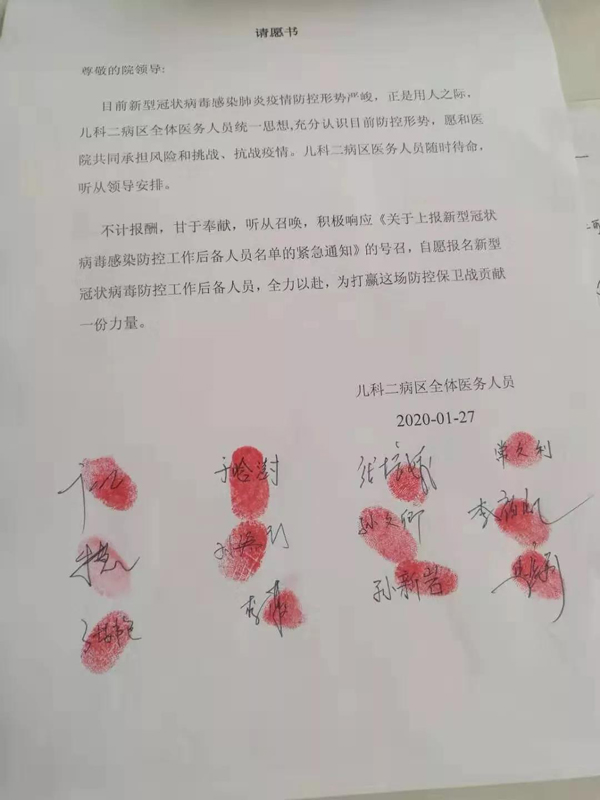 请愿书
尊敬的院领导:
目前新型冠状病毒感染肺炎疫情防控形势严峻，正是用人之际，
儿科二病区全体医务人员统一思想,充分认识目前防控形势，愿和医
院共同承担风险和挑战、抗战疫情。儿科二病区医务人员随时待命，
听从领导安排。
不计报酬，甘于奉献，听从召唤，积极响应《关于上报新型冠状
病毒感染防控工作后备人员名单的紧急通知》的号召，自愿报名新型
冠状病毒防控工作后备人员，全力以赴，为打赢这场防控保卫战贡献
一份力量。
儿科二病区全体医务人员
2020-01-27
常久利
孙文卿
孙新岩